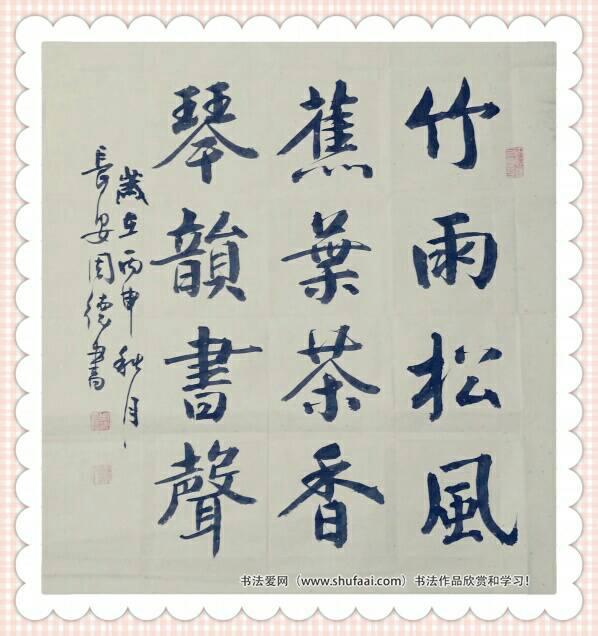 竹雨松風
蕉葉茶香
琴韻書聲
歲在丙申秋月
長安周德書
书法爱网（www.shufaai.com）书法作品欣赏和学习！